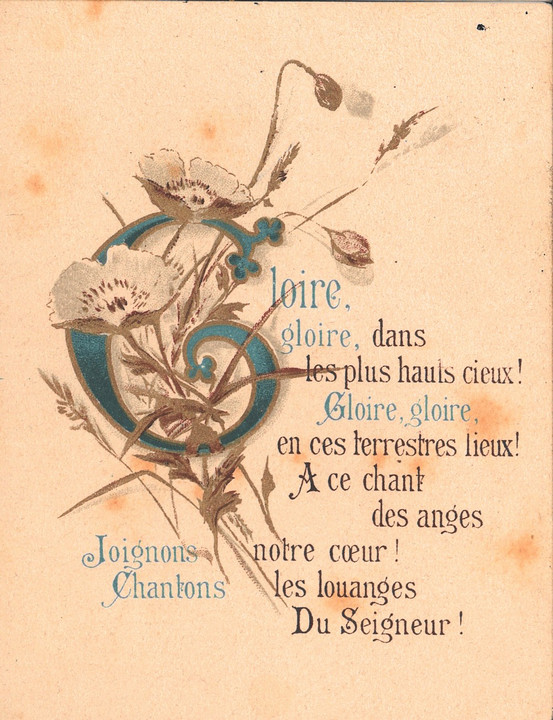 Gloire,
gloire, dans
les plus hauts cieux!
Gloire, gloire,
en ces terrestres lieux!
A ce chant
des anges
Joignons notre cœur!
Chantons les louanges
Du Seigneur!